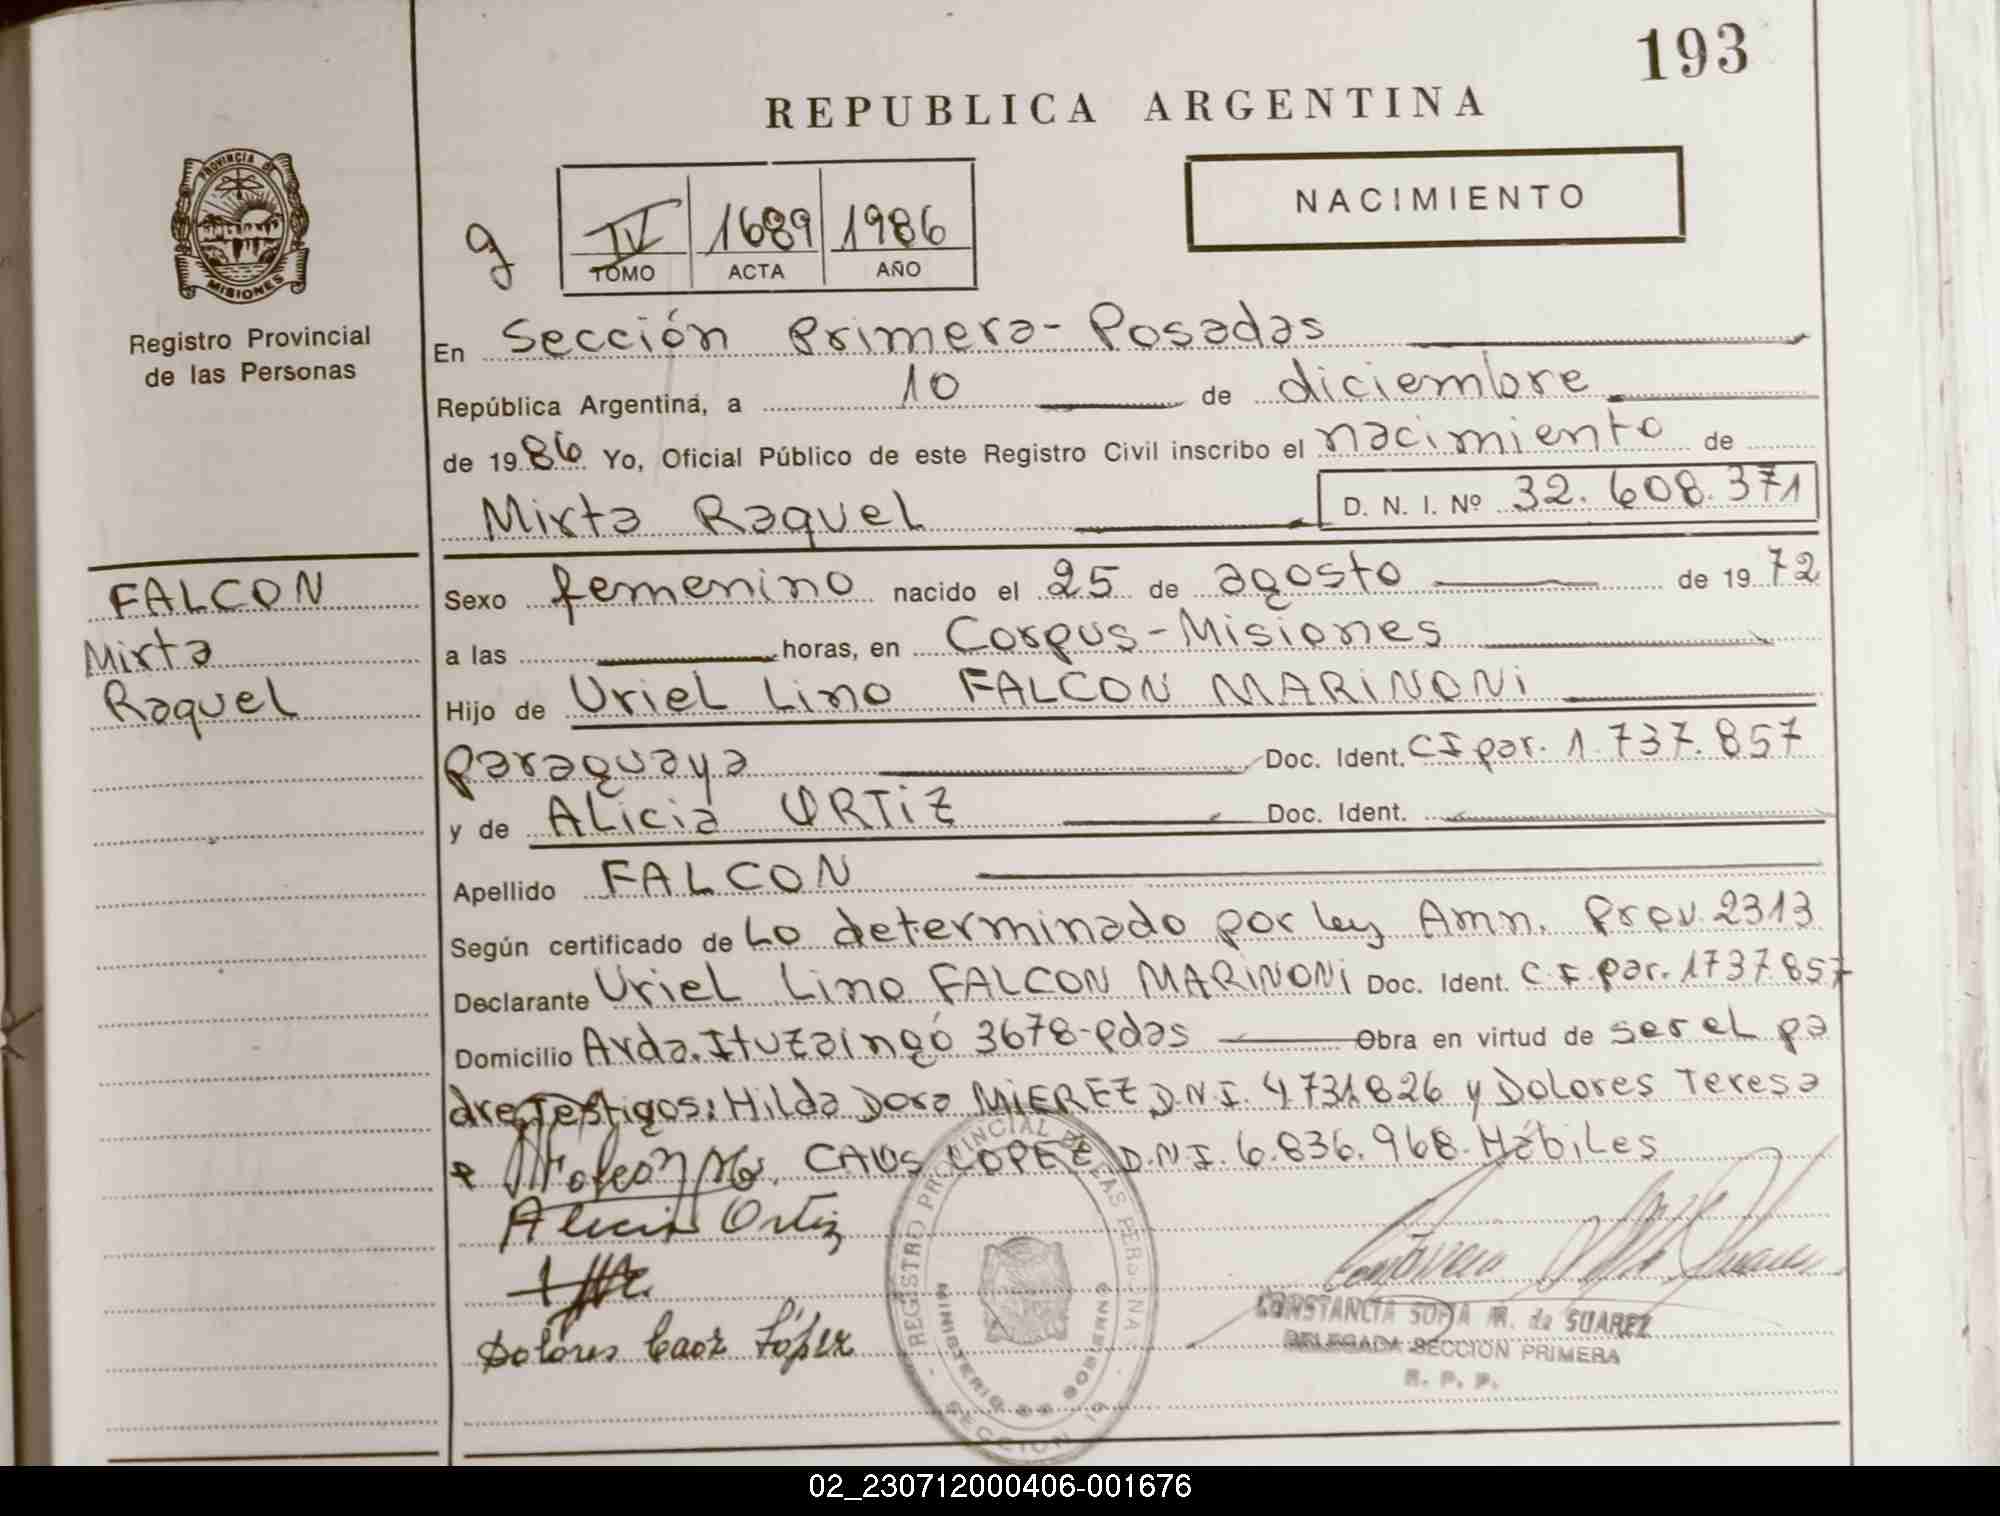 193
REPUBLICA ARGENTINA
PROVINCIA DE
MISIONES
Registro Provincial
de las Personas
NACIMIENTO
g
IV 1689 1986
TOMO ACTA AÑO
En Sección Primera-Posadas
República Argentina, a 10 de diciembre
de 1986 Yo, Oficial Público de este Registro Civil inscribo el nacimiento de
Mirta Raquel D. N. I. Nº 32.608.371
FALCON
Mirta
Raquel
Sexo femenino nacido el 25 de agosto de 1972
a las horas, en Corpus-Misiones
Hijo de Uriel Lino FALCON MARINONI
paraguaya Doc. Ident. CI par. 1.737.857
y de Alicia ORTIZ Doc. Ident.
Apellido FALCON
Según certificado de Lo determinado por ley Amn. Prov. 2313
Declarante Uriel Lino FALCON MARINONI Doc. Ident. C.I. par. 1737.857
Domicilio Avda. Ituzaingó 3678-Pdas Obra en virtud de ser el pa
dre Testigos: Hilda Dora MIEREZ D.N.I. 4.731.826 y Dolores Teresa
CAOS LOPEZ D.N.I. 6.836.968. Hábiles
Alicia Ortiz
Dolores Caoz López
REGISTRO PROVINCIAL DE LAS PERSONAS
MINISTERIO DE GOBIERNO
SECCION 1ª
CONSTANCIA SOFIA M. de SUAREZ
DELEGADA SECCION PRIMERA
R. P. P.
02_230712000406-001676